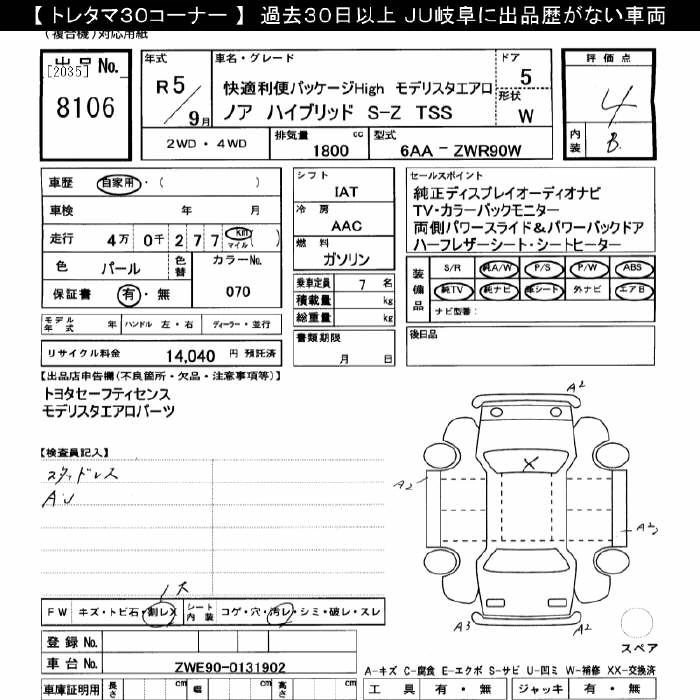 【 トレタマ30コーナー 】 過去30日以上 JU岐阜に出品歴がない車両
(複合機)対応用紙
出品No.
[2035]
8106
年式
R5/9月
車名・グレード
快適利便パッケージHigh モデリスタエアロ
ノア ハイブリッド S-Z TSS
ドア
5
形状
W
2WD・4WD
排気量 cc
1800
型式
6AA - ZWR90W
評価点
4
内装
B.
車歴 自家用・( )
車検 年 月
走行 4万 0千 277 Km マイル ( )
色 パール 色替
カラーNo.
070
保証書 有・無
モデル年式 年 ハンドル 左・右 ディーラー・並行
リサイクル料金 14,040 円 預託済
シフト
IAT
冷房
AAC
燃料
ガソリン
乗車定員 7 名
積載量 kg
総重量 kg
書類期限
月 日
セールスポイント
純正ディスプレイオーディオナビ
TV・カラーバックモニター
両側パワースライド&パワーバックドア
ハーフレザーシート・シートヒーター
装備品
S/R 純A/W P/S P/W ABS
純TV 純ナビ 革シート 外ナビ エアB
ナビ型番:
後日品
【出品店申告欄(不良箇所・欠品・注意事項等)】
トヨタセーフティセンス
モデリスタエアロパーツ
【検査員記入】
スタッドレス
AU
A2
A2
X
A2
A3
A2
スペア
FW キズ・トビ石・割レX シート内装 コゲ・穴・汚レ・シミ・破レ・スレ
登録No.
車台No. ZWE90-0131902
車庫証明用 長さ cm 幅 cm 高さ cm
A-キズ C-腐食 E-エクボ S-サビ U-凹ミ W-補修 XX-交換済
工具 有・無 ジャッキ 有・無